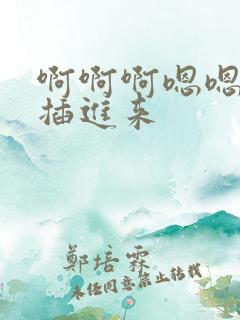 啊啊啊嗯嗯
插進来
鄭培霖
未任同意禁止转载